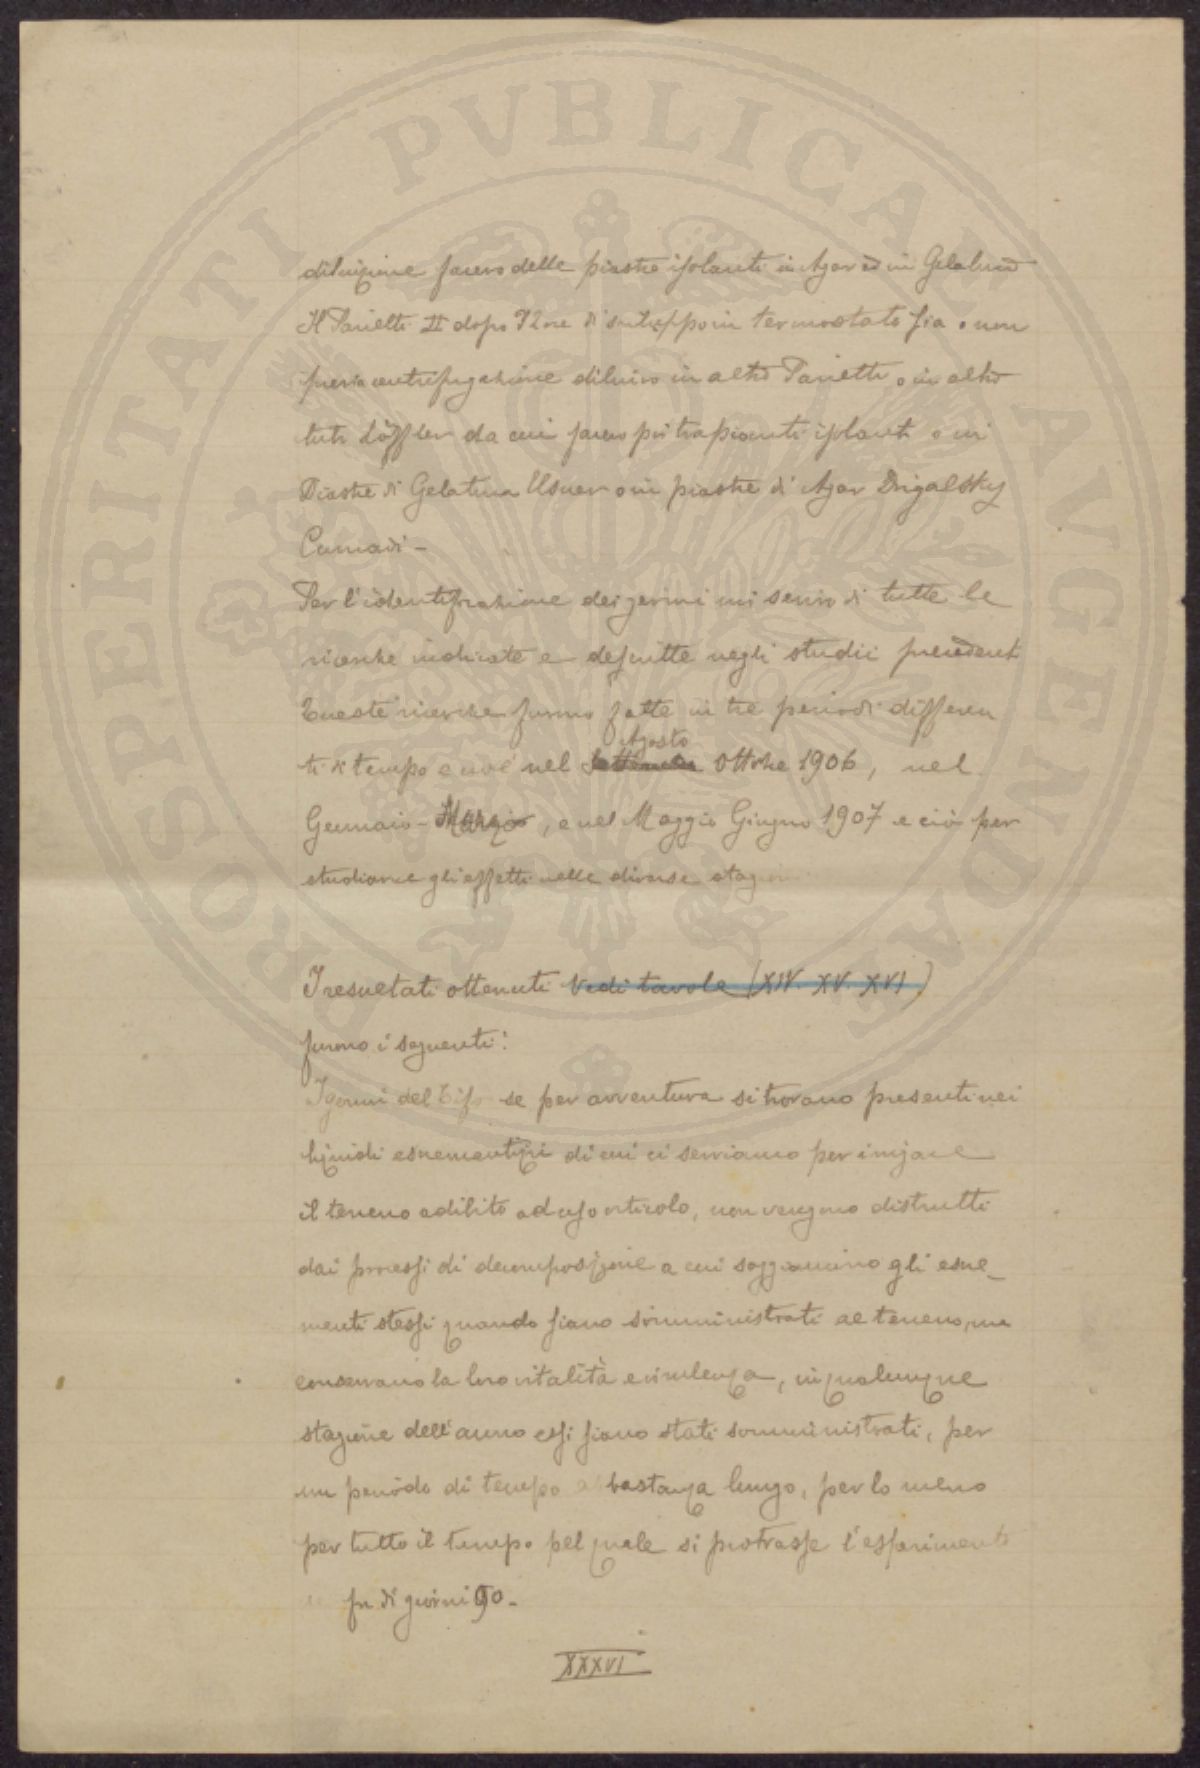 diluizione facevo delle piastre isolanti in Agar ed in Gelatina
Il Parietti II dopo 12 ore di sviluppo in termostato sia o non
previa centrifugazione diluivo in altro Parietti o in altro
tubi Löffler da cui facevo poi trapianti isolanti o in
Piastre di Gelatina Elsner o in piastre di Agar Drigalsky
Conradi -
Per l'identificazione dei germi mi servivo di tutte le
ricerche indicate e descritte negli studii precedenti
Queste ricerche furono fatte in tre periodi differen
ti di tempo e cioè nel Settembre Agosto Ottobre 1906, nel
Gennaio - Marzo, e nel Maggio Giugno 1907 e ciò per
studiarne gli effetti nelle diverse stagioni
I resultati ottenuti Vedi tavole (XIV. XV. XVI)
furono i seguenti:
I germi del Tifo se per avventura si trovano presenti nei
liquidi escrementizi di cui ci serviamo per irrigare
il terreno adibito ad uso orticolo, non vengono distrutti
dai processi di decomposizione a cui soggiacciono gli escre_
menti stessi quando siano somministrati al terreno, ma
conservano la loro vitalità e virulenza, in qualunque
stagione dell'anno essi siano stati somministrati, per
un periodo di tempo abbastanza lungo, per lo meno
per tutto il tempo pel quale si protrasse l'esperimento
fu di giorni 90.
XXXVI
PROSPERITATI PVBLICAE AVGENDAE